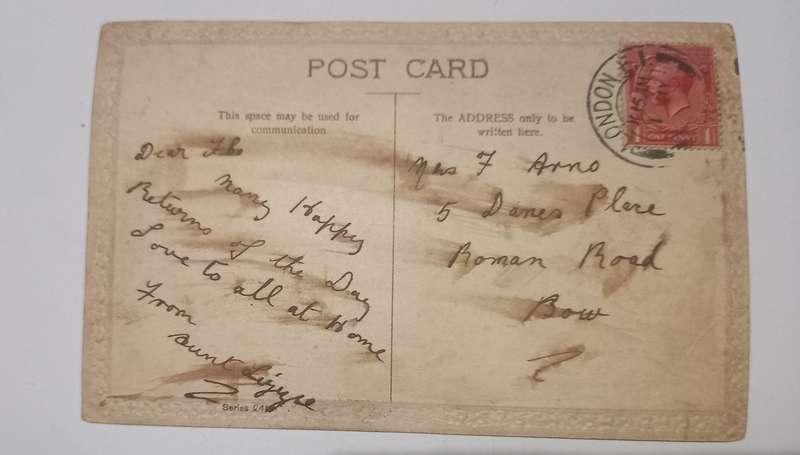 POST CARD
This space may be used for
communication
The ADDRESS only to be
written here.
LONDON. E.1
ONE PENNY
Dear Flo
Many Happy
Returns of the Day
Love to all at Home
From
Aunt Lizzie
Series 241
Mrs F Arno
5 Danes Place
Roman Road
Bow